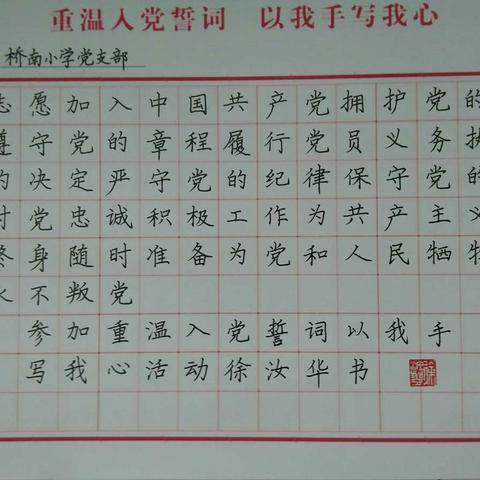 重温入党誓词 以我手写我心
桥南小学党支部
志愿加入中国共产党拥护党的
遵守党的章程履行党员义务执
的决定严守党的纪律保守党的
对党忠诚积极工作为共产主义
终身随时准备为党和人民牺牲
永不叛党
参加重温入党誓词以我手
写我心活动徐汝华书